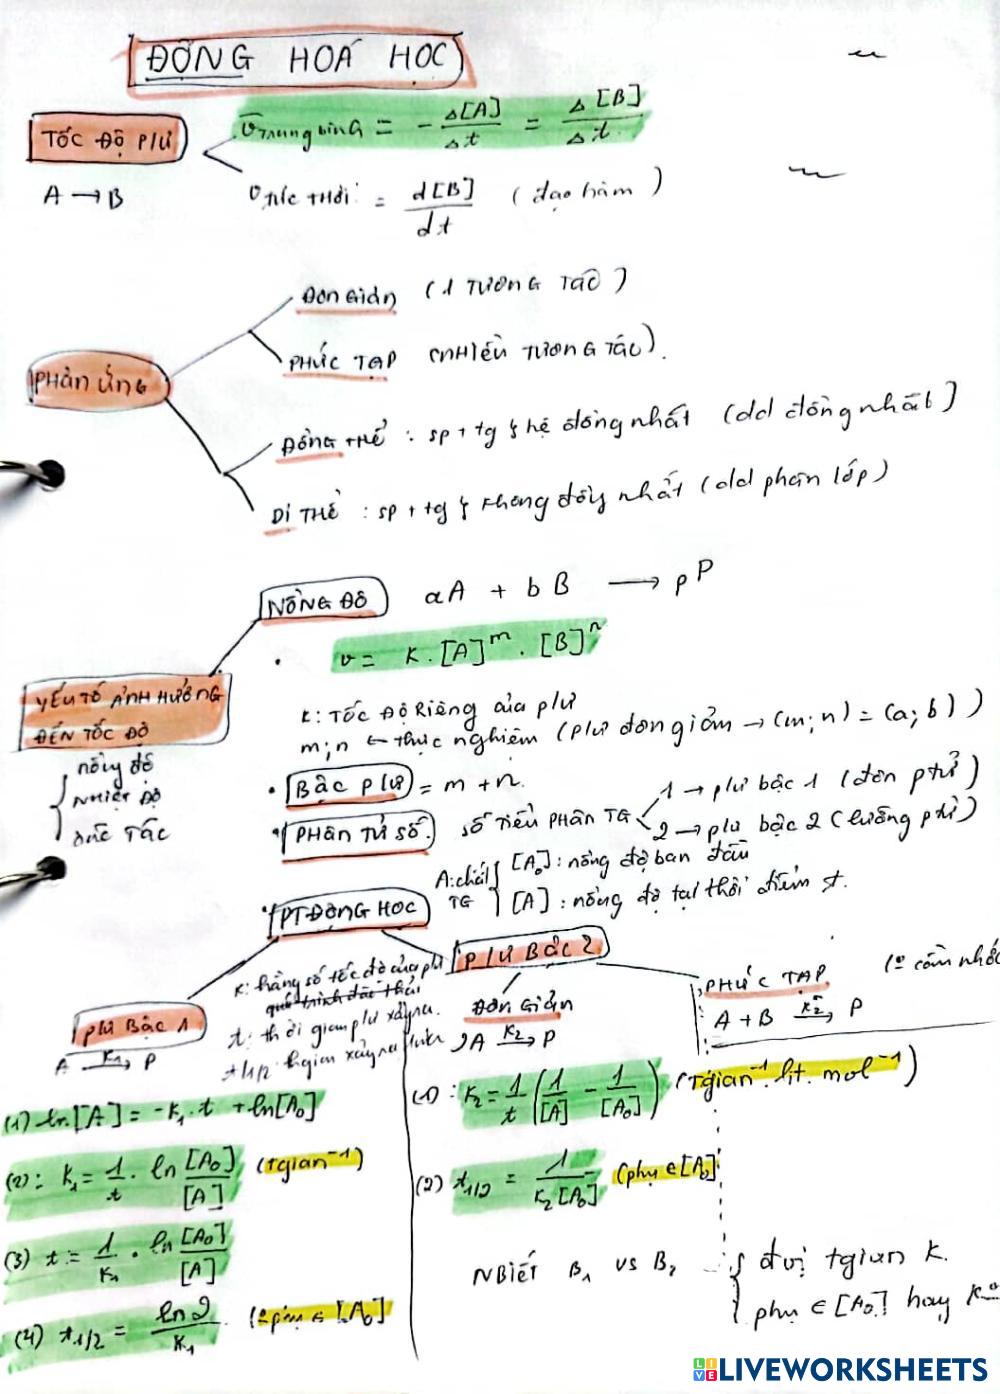 ĐỘNG HOÁ HỌC
TỐC ĐỘ PỨ
A → B
v TRUNG BÌNH = - Δ[A]/Δt = Δ[B]/Δt
v TỨC THỜI = d[B]/dt (đạo hàm)
PHẢN ỨNG
ĐƠN GIẢN (1 TƯƠNG TÁC)
PHỨC TẠP (NHIỀU TƯƠNG TÁC).
ĐỒNG THỂ : sp + tg hệ đồng nhất (dd đồng nhất)
DỊ THỂ : sp + tg không đồng nhất (dd phân lớp)
NỒNG ĐỘ aA + bB → pP
v = k.[A]^m.[B]^n
YẾU TỐ ẢNH HƯỞNG ĐẾN TỐC ĐỘ
nồng độ
NHIỆT ĐỘ
XÚC TÁC
k: TỐC ĐỘ RIÊNG của pứ
m;n ← thực nghiệm (pứ đơn giản → (m;n) = (a;b))
BẬC PỨ = m + n.
PHÂN TỬ SỐ. SỐ TIỂU PHÂN TG
1 → pứ bậc 1 (đơn phtử)
2 → pứ bậc 2 (lưỡng ptử)
A: chất TG
[A₀]: nồng độ ban đầu
[A]: nồng độ tại thời điểm t.
PT ĐỘNG HỌC
k: hằng số tốc độ của pứ
t: thời gian pứ xảy ra.
PỨ BẬC 1
A k₁→ P
(1) ln[A] = -k₁.t + ln[A₀]
(2): k₁ = 1/t . ln [A₀]/[A] (tgian⁻¹)
(3) t = 1/k₁ . ln [A₀]/[A]
(4) t1/2 = ln2/k₁ (ko phụ ∈ [A₀])
PỨ BẬC 2
ĐƠN GIẢN
A k₂→ P
(1): k₂ = 1/t (1/[A] - 1/[A₀]) (Tgian⁻¹.lit.mol⁻¹)
(2) t1/2 = 1/k₂[A₀] (phụ ∈ [A₀]
PHỨC TẠP
A + B k₂→ P
NBIẾT B₁ VS B₂
đvị tgian k.
phụ ∈ [A₀] hay ko
LIVEWORKSHEETS